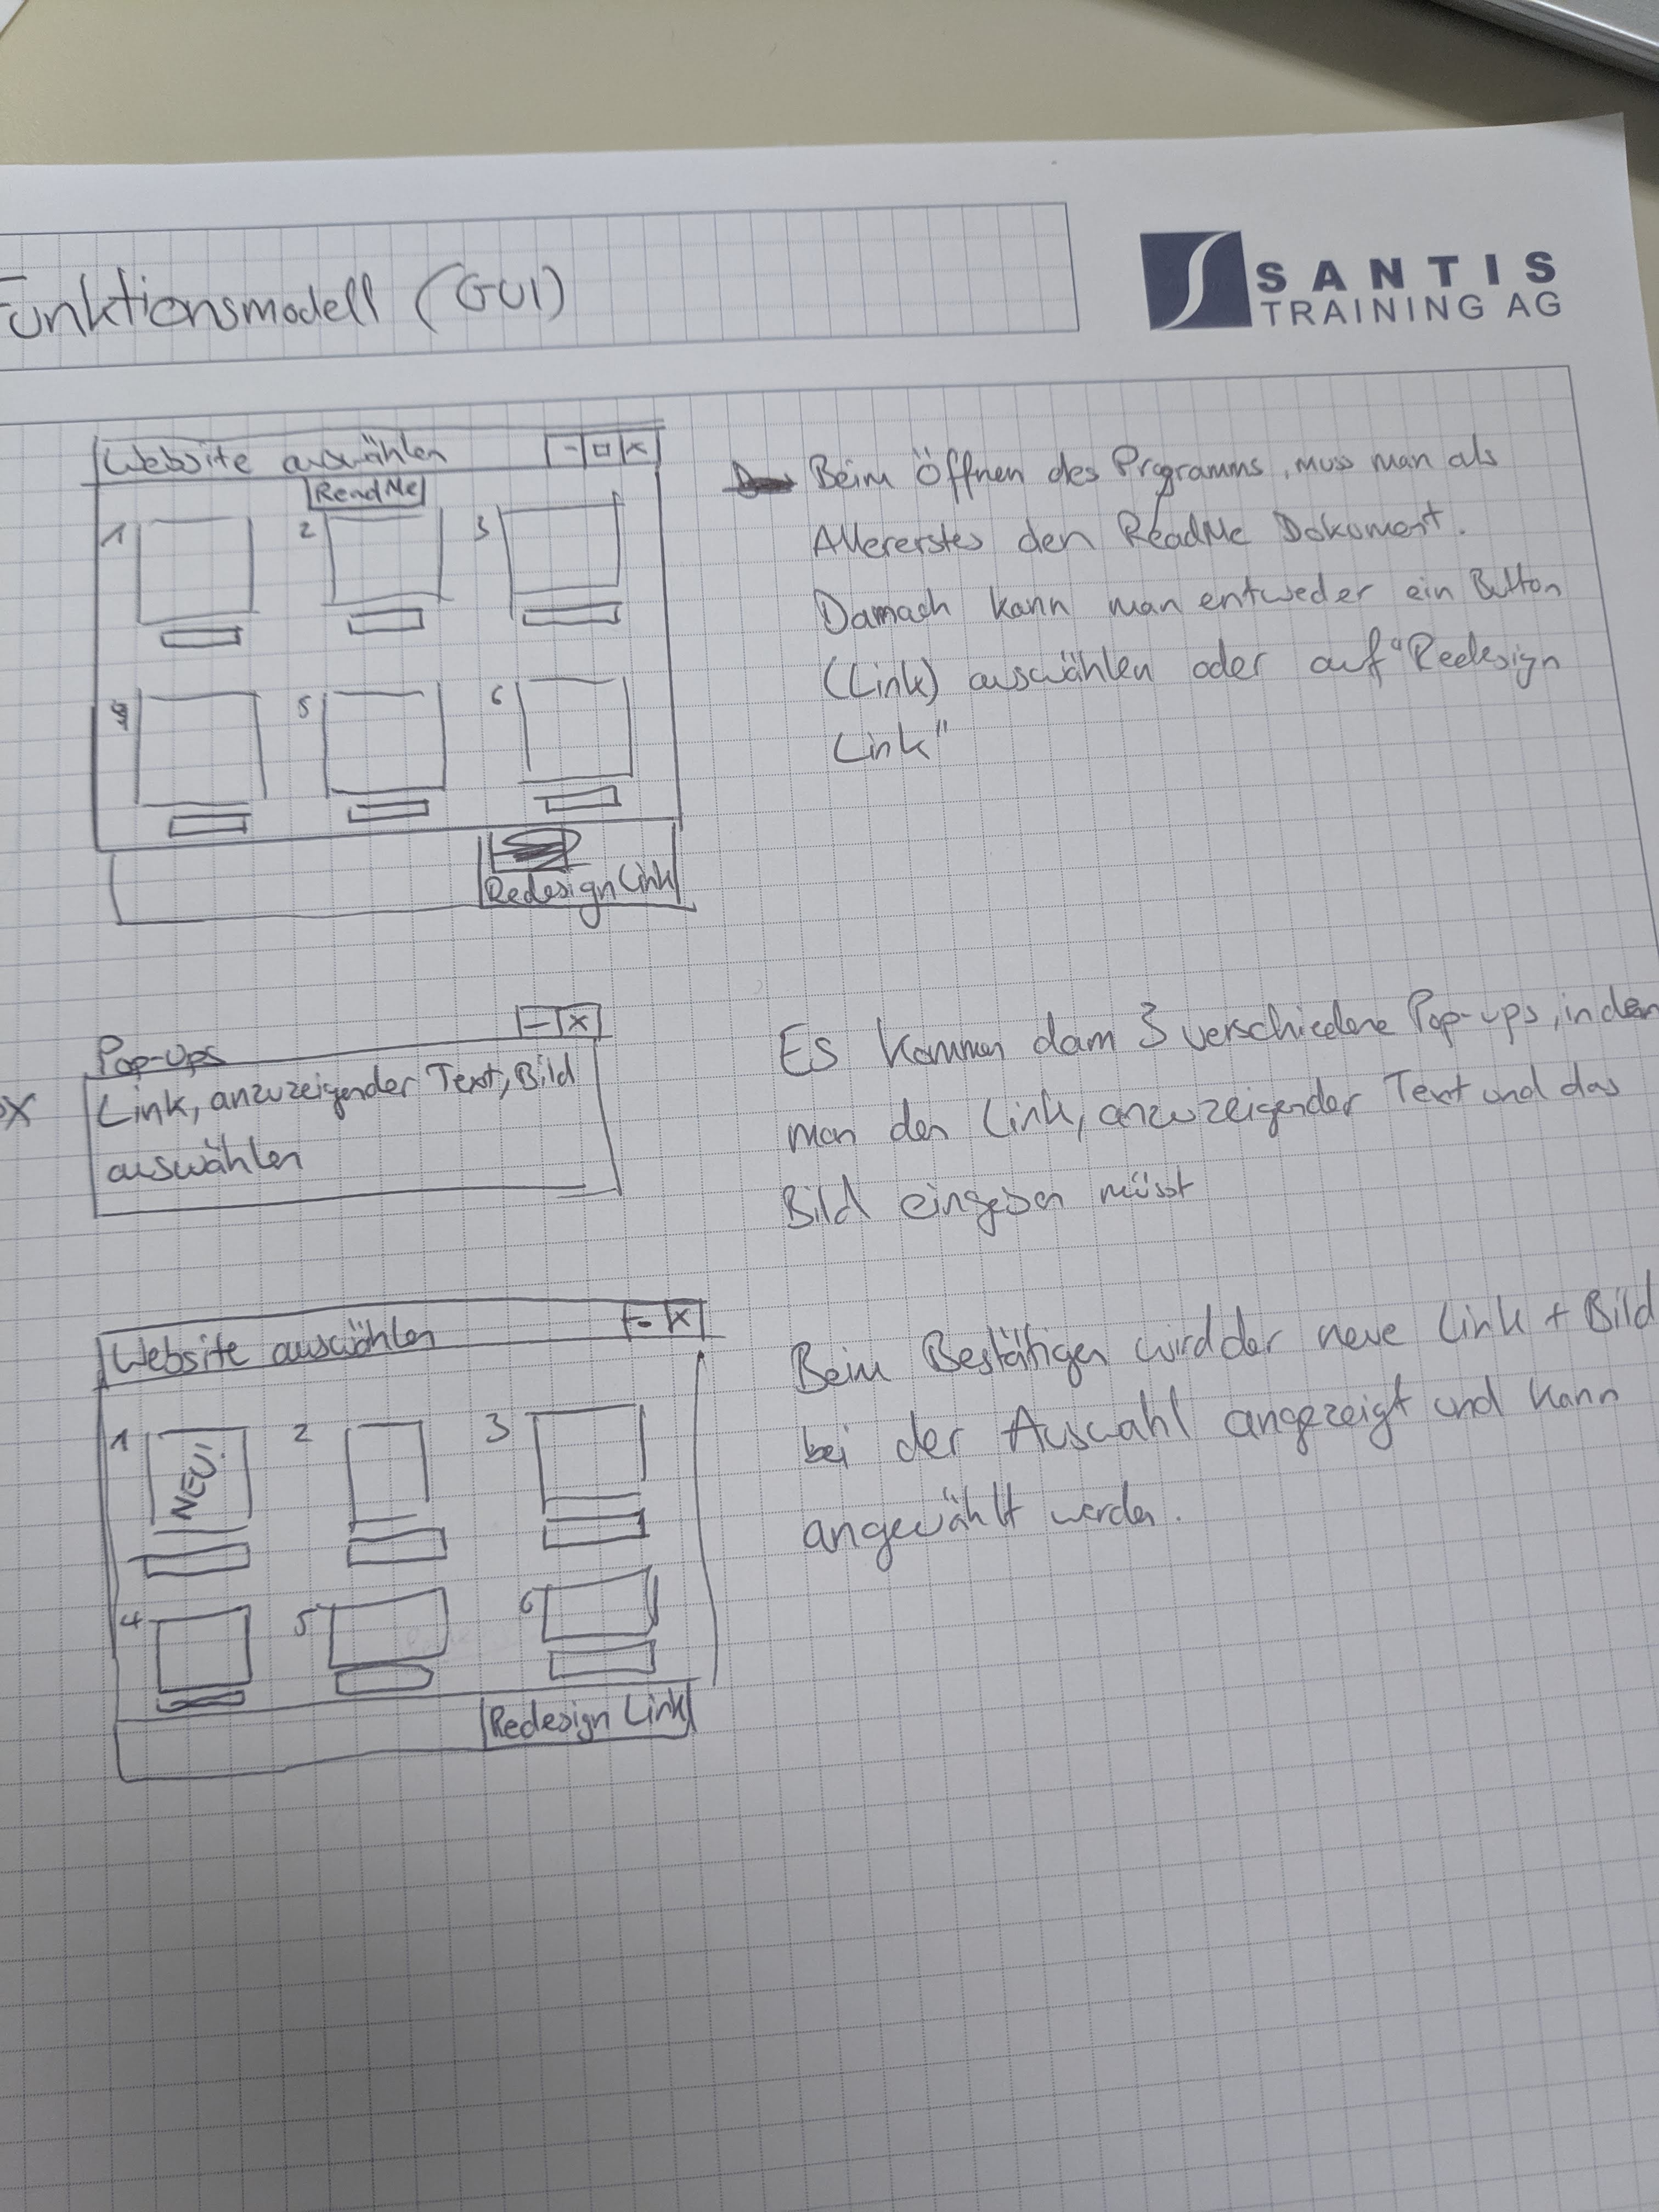 Funktionsmodell (GUI)
SANTIS
TRAINING AG
Website auswählen - □ X
ReadMe
1 2 3
4 5 6
Redesign Link
Beim Öffnen des Programms, muss man als
Allererstes den ReadMe Dokument.
Damach kann man entweder ein Button
(Link) auswählen oder auf "Redesign
Link"
Pop-ups - X
Link, anzuzeigender Text, Bild
auswählen
Es kommen dann 3 verschiedene Pop-ups, in den
man den Link, anzuzeigender Text und das
Bild eingeben müsst
Website auswählen - X
1 NEU! 2 3
4 5 6
Redesign Link
Beim Bestätigen wird der neue Link + Bild
bei der Auswahl angezeigt und kann
angewählt werden.